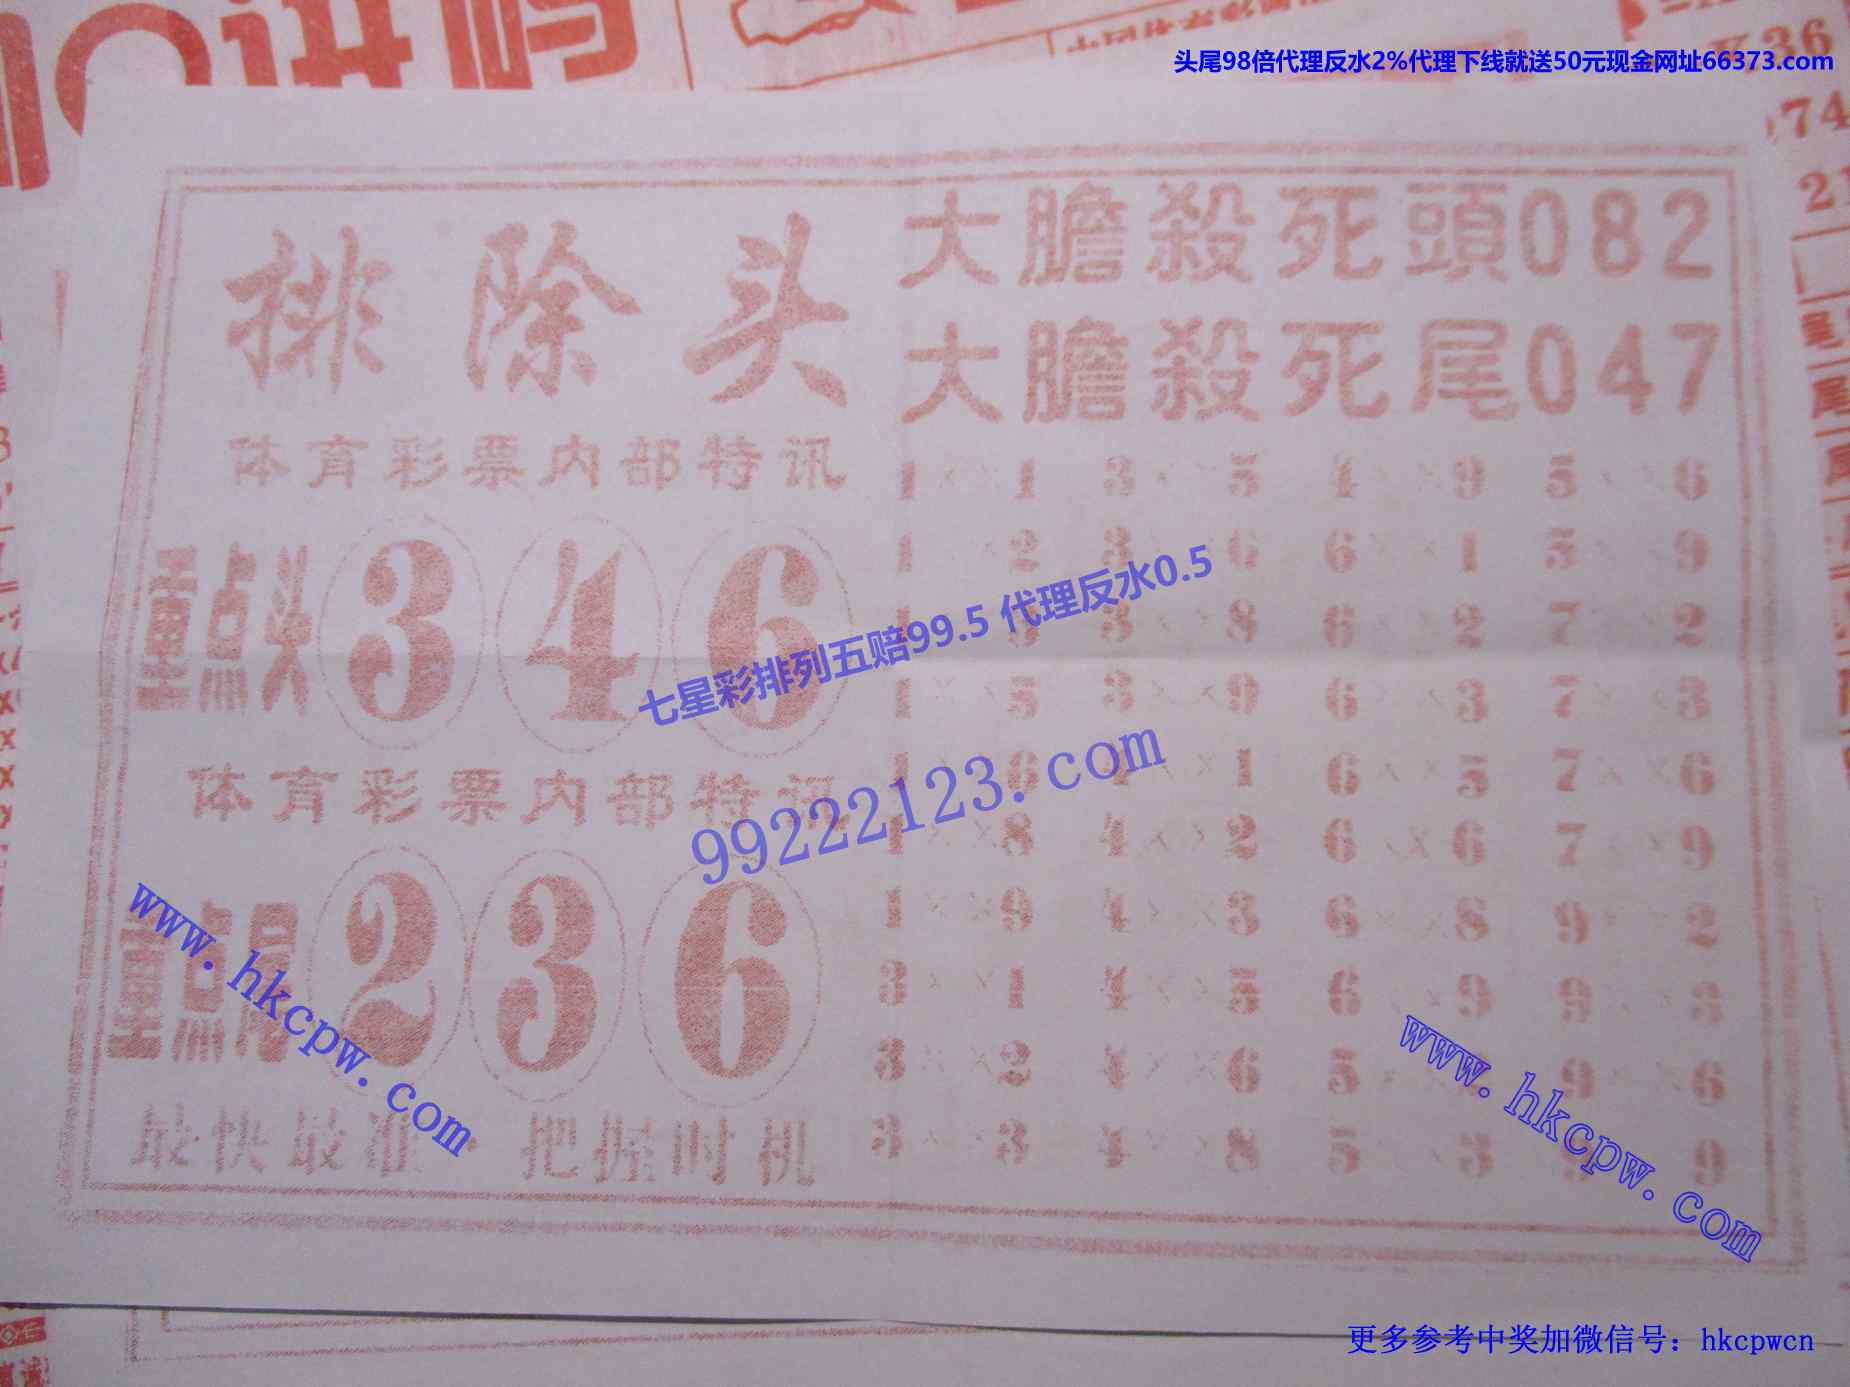 头尾98倍代理反水2%代理下线就送50元现金网址66373.com
K36
74
排除头
大膽殺死頭082
大膽殺死尾047
体育彩票内部特讯
重点头 3 4 6
体育彩票内部特讯
重点尾 2 3 6
最快最准 把握时机
1××1 3××5 4××9 5××6
1××2 3××6 6××1 5××9
3××8 6××2 7××2
1××5 3××9 6××3 7××3
1××6 4××1 6××5 7××6
1××8 4××2 6××6 7××9
1××9 4××3 6××8 9××2
3××1 4××5 6××9 9××3
3××2 4××6 9××6
3××3 4××8 5××5
七星彩排列五赔99.5 代理反水0.5
99222123.com
www.hkcpw.com
www.hkcpw.com
更多参考中奖加微信号：hkcpwcn